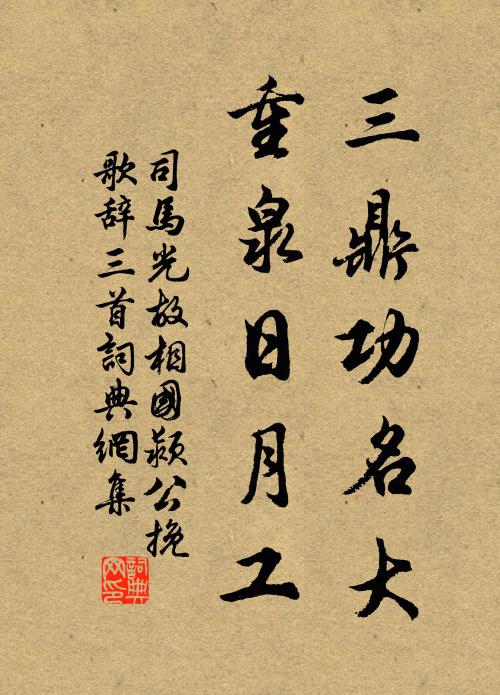 三鼎功名大
重泉日月工
司馬光故相國潁公挽
歌辞三首詞典網集
詞典网印